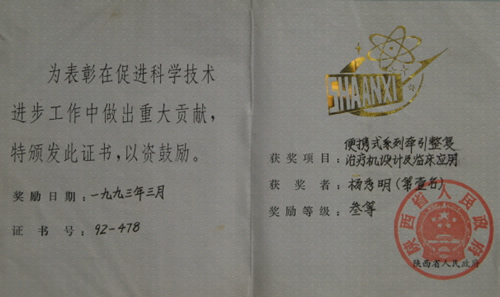 为表彰在促进科学技术
进步工作中做出重大贡献，
特颁发此证书，以资鼓励。
奖励日期：一九九三年三月
证书号：92-478
SHAANXI
便携式系列牵引整复
获奖项目：治疗机设计及临床应用
获奖者：杨秀明（第壹名）
奖励等级：叁等
陕西省人民政府
陕西省人民政府